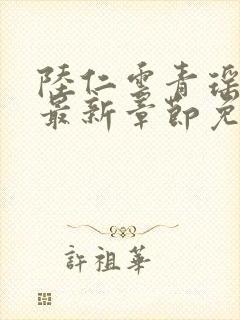 陸仁雲青瑶
最新章節免
許祖華